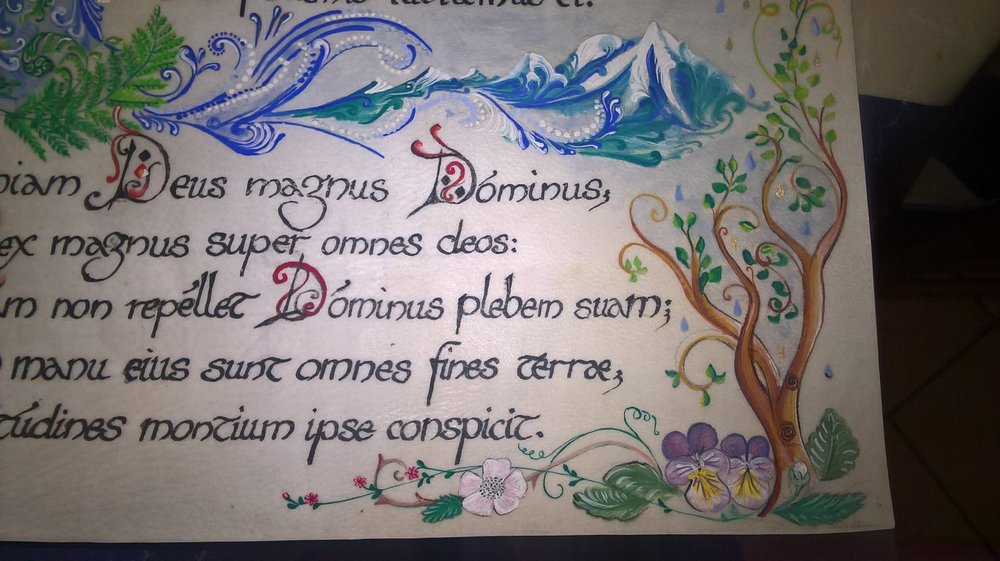 ei.
niam Deus magnus Dóminus;
ex magnus super omnes deos:
m non repéllet Dóminus plebem suam;
manu eius sunt omnes fines terræ;
túdines montium ipse conspicit.